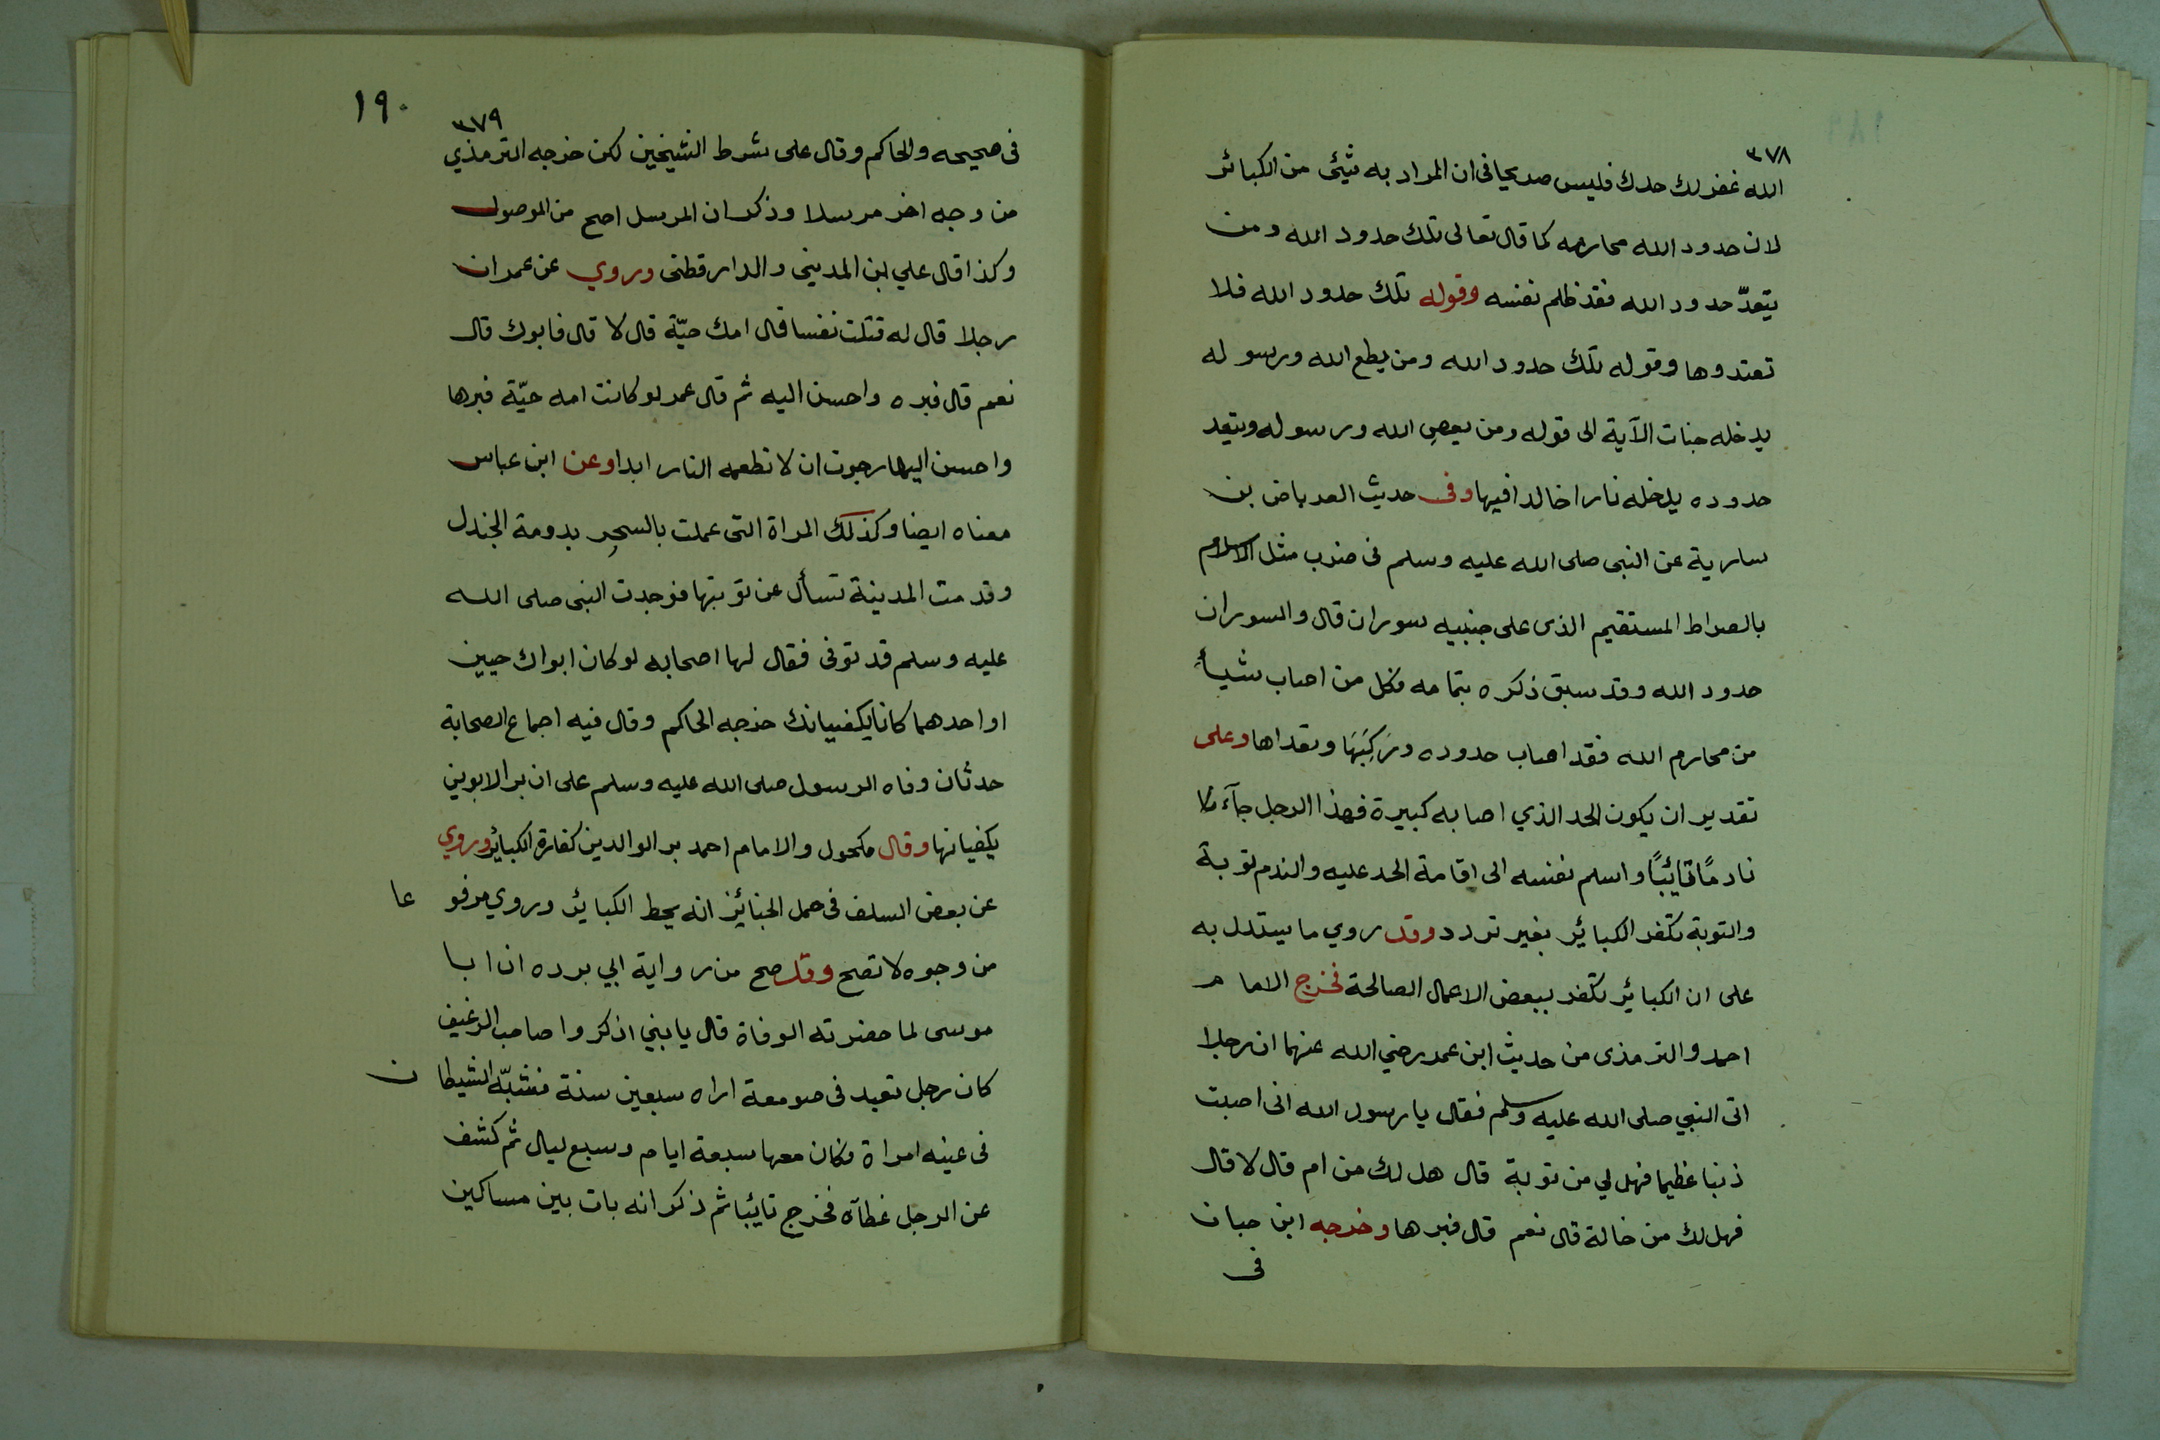 ٣٧٨
الله غفر لك حدك فليس صريحا فى ان المراد به شيئ من الكبائر
لان حدود الله محارمه كما قال تعالى تلك حدود الله ومن
يتعدّ حدود الله فقد ظلم نفسه وقوله تلك حدود الله فلا
تعتدوها وقوله تلك حدود الله ومن يطع الله ورسوله
يدخله جنات الآية الى قوله ومن يعصِ الله ورسوله ويتعد
حدوده يدخله نارا خالدا فيها وفى حديث العرباض بن
سارية عن النبى صلى الله عليه وسلم فى ضرب مثل الاسلام
بالصراط المستقيم الذى على جنبيه سوران قال والسوران
حدود الله وقد سبق ذكره بتمامه فكل من اصاب شيأً
من محارم الله فقد اصاب حدوده ورَكِبَهَا وتعداها وعلى
تقدير ان يكون الحد الذي اصابه كبيرة فهذا الرجل جآء
نادمًا تائبًا واسلم نفسه الى اقامة الحد عليه والندم توبة
والتوبة تكفر الكبائر بغير تردد وقد روي ما يستدل به
على ان الكبائر تكفر ببعض الاعمال الصالحة فخرج الامام
احمد والترمذى من حديث ابن عمر رضي الله عنهما ان رجلا
اتى النبي صلى الله عليه وسلم فقال يا رسول الله انى اصبت
ذنبا عظيما فهل لي من توبة قال هل لك من ام قال لا قال
فهل لك من خالة قال نعم قال فبرها وخرجه ابن حبان
فى
١٩٠
٣٧٩
فى صحيحه والحاكم وقال على شرط الشيخين لكن خرجه الترمذي
من وجه اخر مرسلا وذكر ان المرسل اصح من الموصول
وكذا قال علي بن المديني والدارقطنى وروي عن عمر ان
رجلا قال له قتلت نفسا قال امك حيّة قال لا قال فابوك قال
نعم قال فبره واحسن اليه ثم قال عمر لو كانت امه حيّة فبرها
واحسن اليها رجوت ان لا تطعمه النار ابدا وعن ابن عباس
معناه ايضا وكذلك المراة التى عملت بالسحر بدومة الجندل
وقدمت المدينة تسأل عن توبتها فوجدت النبى صلى الله
عليه وسلم قد توفى فقال لها اصحابه لو كان ابواك حيين
او احدهما كانا يكفيانك خرجه الحاكم وقال فيه اجماع الصحابة
حدثان وفاه الرسول صلى الله عليه وسلم على ان بر الابوين
يكفيانها وقال مكحول والامام احمد بر الوالدين كفارة الكبائر وروي
عن بعض السلف فى حمل الجنائز انه يحط الكبائر وروي مرفوعا
من وجوه لا تصح وقد صح من رواية ابي برده ان ابا
موسى لما حضرته الوفاة قال يا بني اذكروا صاحب الرغيف
كان رجل تعبد فى صومعة اراه سبعين سنة فشبّه الشيطان
فى عينه امراة فكان معها سبعة ايام وسبع ليال ثم كشف
عن الرجل غطآه فخرج تائبا ثم ذكر انه بات بين مساكين